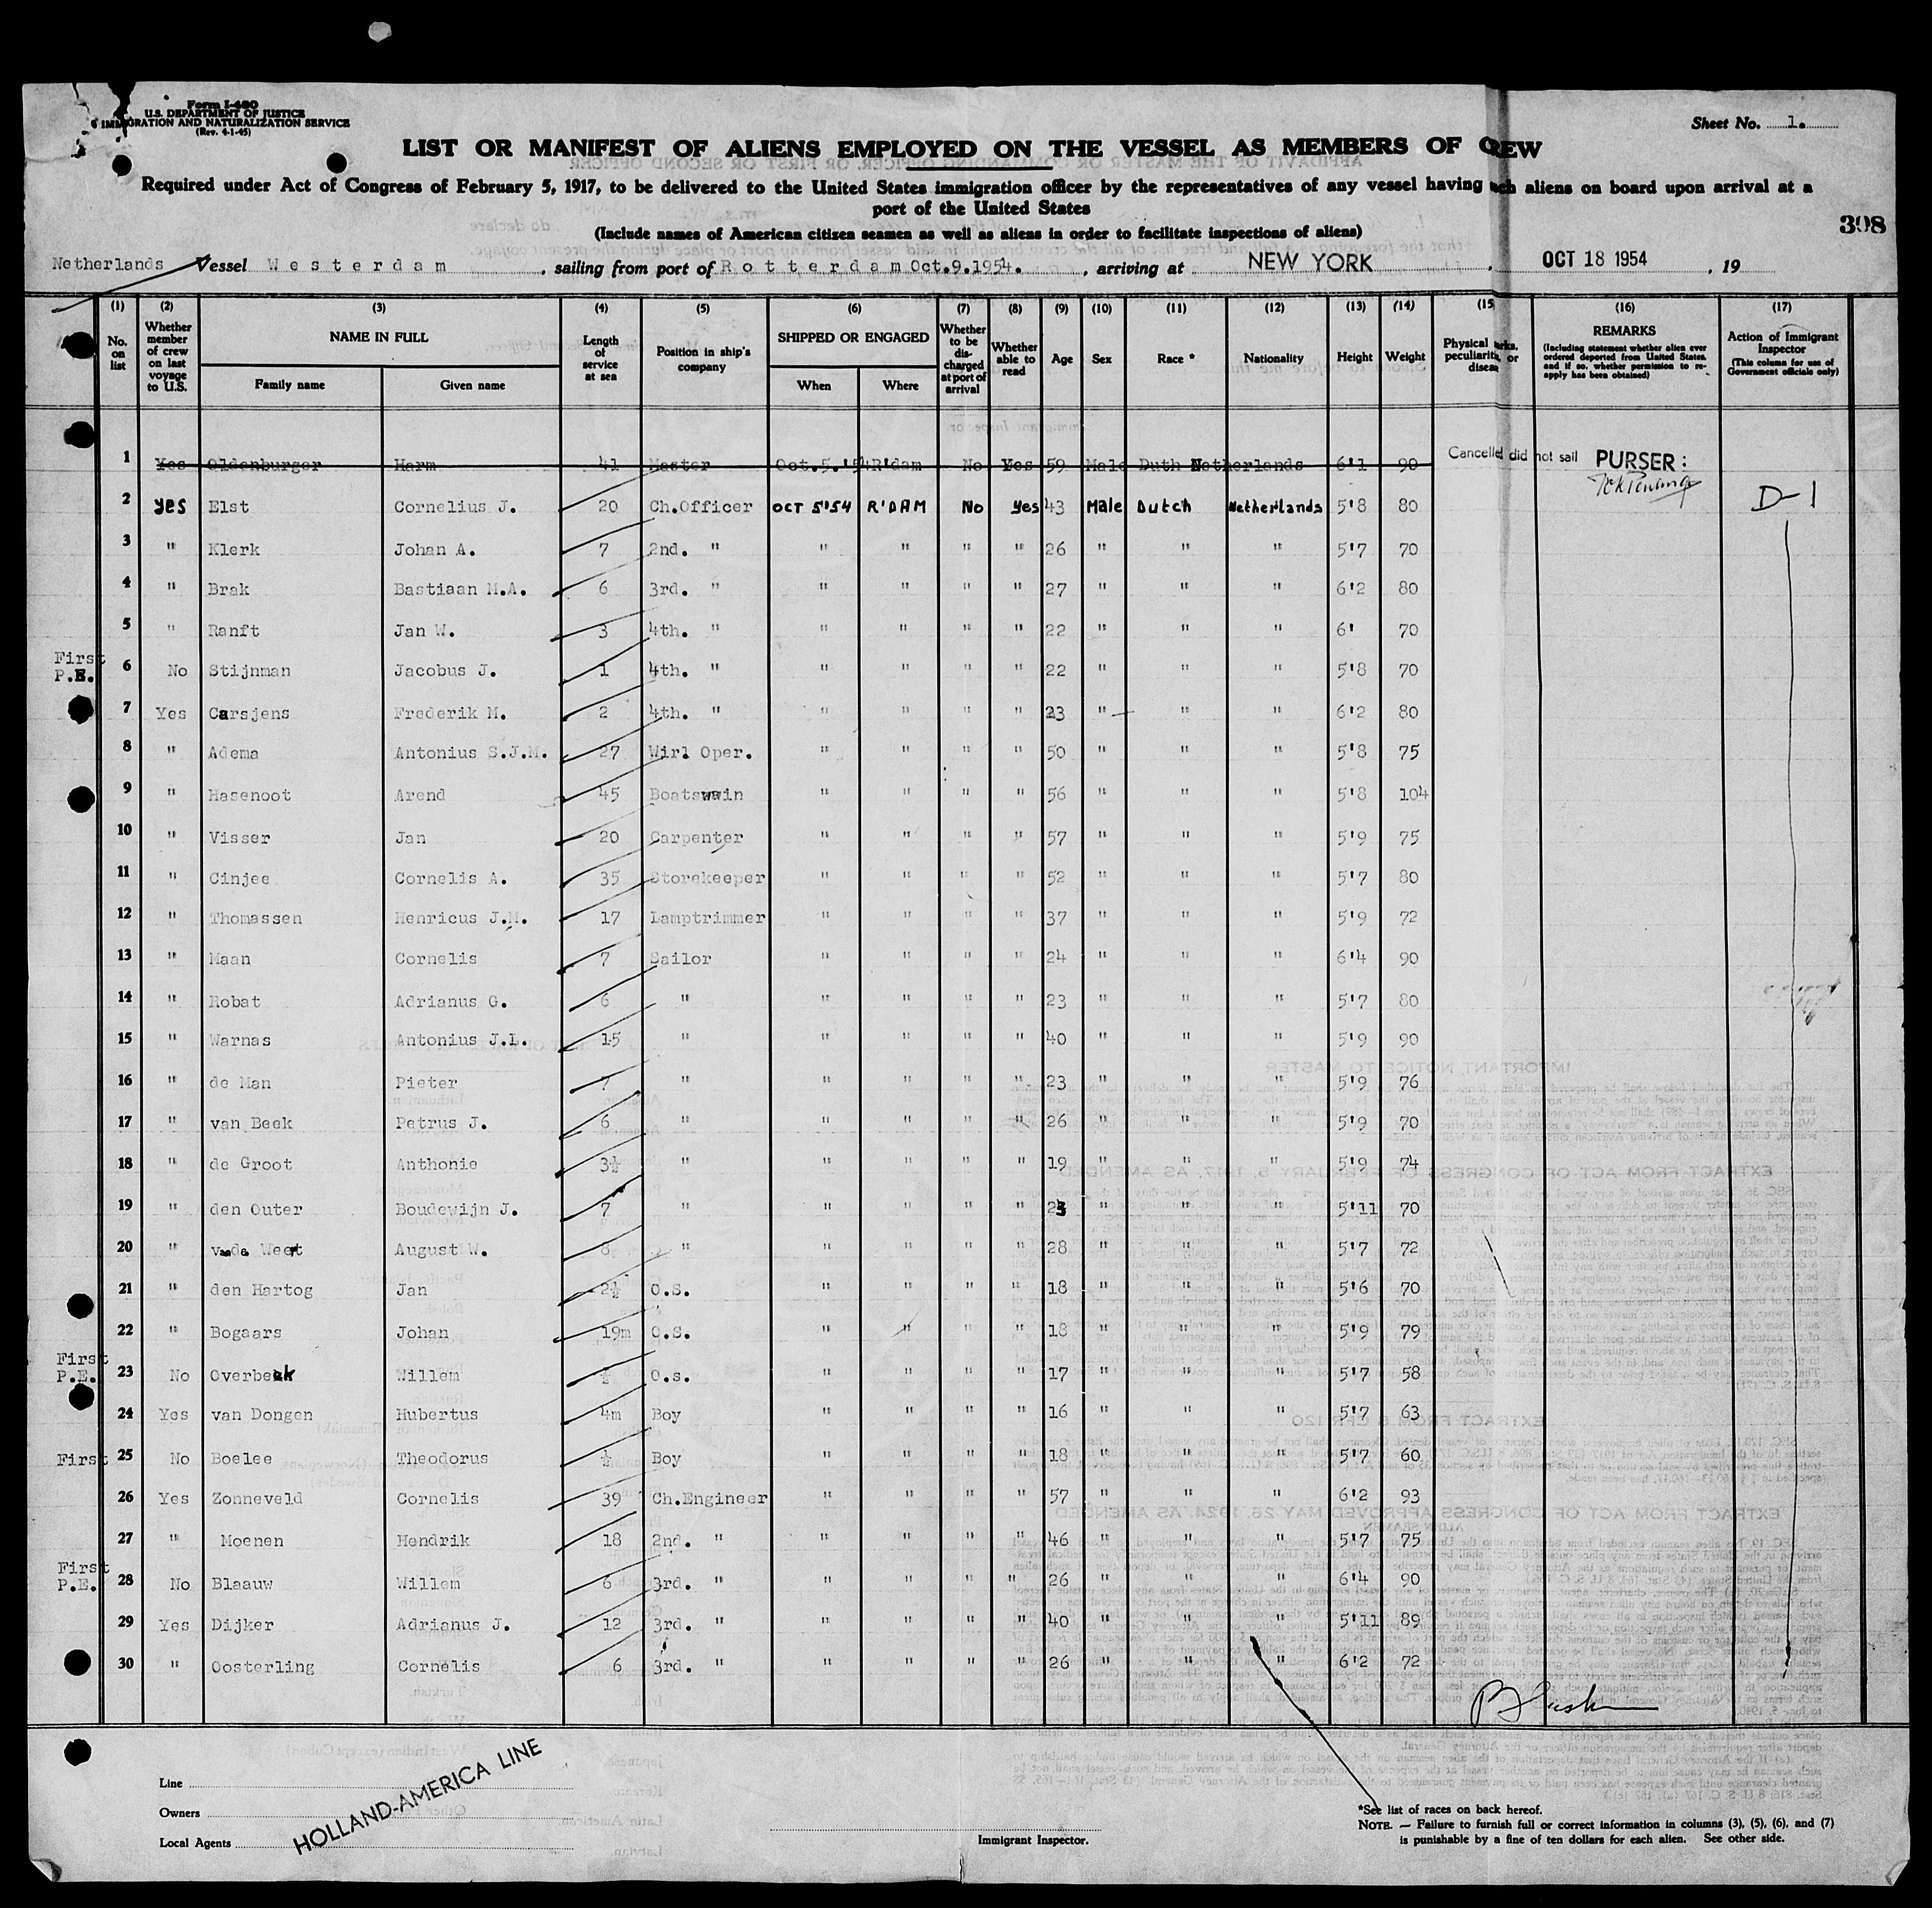 Form I-480
U.S. DEPARTMENT OF JUSTICE
IMMIGRATION AND NATURALIZATION SERVICE
(Rev. 4-1-45)
Sheet No. 1.
LIST OR MANIFEST OF ALIENS EMPLOYED ON THE VESSEL AS MEMBERS OF CREW
Required under Act of Congress of February 5, 1917, to be delivered to the United States immigration officer by the representatives of any vessel having such aliens on board upon arrival at a
port of the United States
398
(Include names of American citizen seamen as well as aliens in order to facilitate inspections of aliens)
Netherlands Vessel Westerdam, sailing from port of Rotterdam Oct.9.1954., arriving at NEW YORK, OCT 18 1954, 19
(1) (2) (3) (4) (5) (6) (7) (8) (9) (10) (11) (12) (13) (14) (15) (16) (17)
No. on list | Whether member of crew on last voyage to U.S. | NAME IN FULL | Family name | Given name | Length of service at sea | Position in ship's company | SHIPPED OR ENGAGED | When | Where | Whether to be discharged at port of arrival | Whether able to read | Age | Sex | Race * | Nationality | Height | Weight | Physical marks, peculiarities, or disease | REMARKS (Including statement whether alien ever ordered deported from United States, and if so, whether permission to re-apply has been obtained) | Action of Immigrant Inspector (This column for use of Government officials only)
1 Yes Oldenburger Harm 41 Master Oct.5.'54 R'dam No Yes 59 Male Duth Netherlands 6'1 90 Cancelled did not sail PURSER:
2 Yes Elst Cornelius J. 20 Ch.Officer OCT 5'54 R'DAM No Yes 43 Male Dutch Netherlands 5'8 80 D-1
3 " Klerk Johan A. 7 2nd. " " " " " 26 " " " 5'7 70
4 " Brak Bastiaan M.A. 6 3rd. " " " " " 27 " " " 6'2 80
5 " Ranft Jan W. 3 4th. " " " " " 22 " " " 6' 70
First P.E. 6 No Stijnman Jacobus J. 1 4th. " " " " " 22 " " " 5'8 70
7 Yes Carsjens Frederik M. 2 4th. " " " " " 23 " " " 6'2 80
8 " Adema Antonius S.J.M. 27 Wirl Oper. " " " " 50 " " " 5'8 75
9 " Hasenoot Arend 45 Boatswain " " " " 56 " " " 5'8 104
10 " Visser Jan 20 Carpenter " " " " 57 " " " 5'9 75
11 " Cinjee Cornelis A. 35 Storekeeper " " " " 52 " " " 5'7 80
12 " Thomassen Henricus J.M. 17 Lamptrimmer " " " " 37 " " " 5'9 72
13 " Maan Cornelis 7 Sailor " " " " 24 " " " 6'4 90
14 " Robat Adrianus G. 6 " " " " " 23 " " " 5'7 80
15 " Warnas Antonius J.L. 15 " " " " " 40 " " " 5'9 90
16 " de Man Pieter 7 " " " " " 23 " " " 5'9 76
17 " van Beek Petrus J. 6 " " " " " 26 " " " 5'9 70
18 " de Groot Anthonie 3½ " " " " " 19 " " " 5'9 74
19 " den Outer Boudewijn J. 7 " " " " " 23 " " " 5'11 70
20 " August W. 8 " " " " " 28 " " " 5'7 72
21 " den Hartog Jan 2½ O.S. " " " " 18 " " " 5'6 70
22 " Bogaars Johan 19m O.S. " " " " 18 " " " 5'9 79
First P.E. 23 No Overbeek Willem ½ O.s. " " " " 17 " " " 5'7 58
24 Yes van Dongen Hubertus 4m Boy " " " " 16 " " " 5'7 63
First 25 No Boelee Theodorus ½ Boy " " " " 18 " " " 5'7 60
26 Yes Zonneveld Cornelis 39 Ch.Engineer " " " " 57 " " " 6'2 93
27 " Moenen Hendrik 18 2nd. " " " " " 46 " " " 5'7 75
First P.E. 28 No Blaauw Willem 6 3rd. " " " " " 26 " " " 6'4 90
29 Yes Dijker Adrianus J. 12 3rd. " " " " " 40 " " " 5'11 89
30 " Oosterling Cornelis 6 3rd. " " " " " 26 " " " 6'2 72
Line
Owners
Local Agents
HOLLAND-AMERICA LINE
Immigrant Inspector.
*See list of races on back hereof.
NOTE. — Failure to furnish full or correct information in columns (3), (5), (6), and (7)
is punishable by a fine of ten dollars for each alien. See other side.